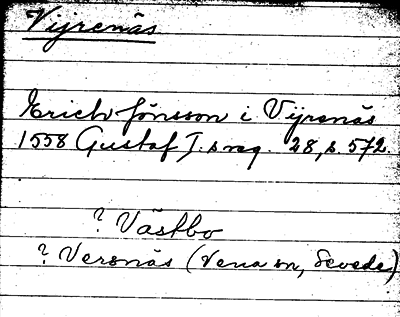 Vijrenäs
Erich Jönsson i Vijrenäs
1558 Gustaf I.s reg. 28, s. 572.
? Västbo
? Versnäs (Vena sn, Sevede)